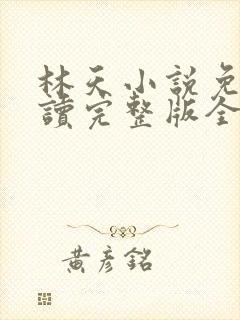 林天小說免
讀完整版全
黃彥銘